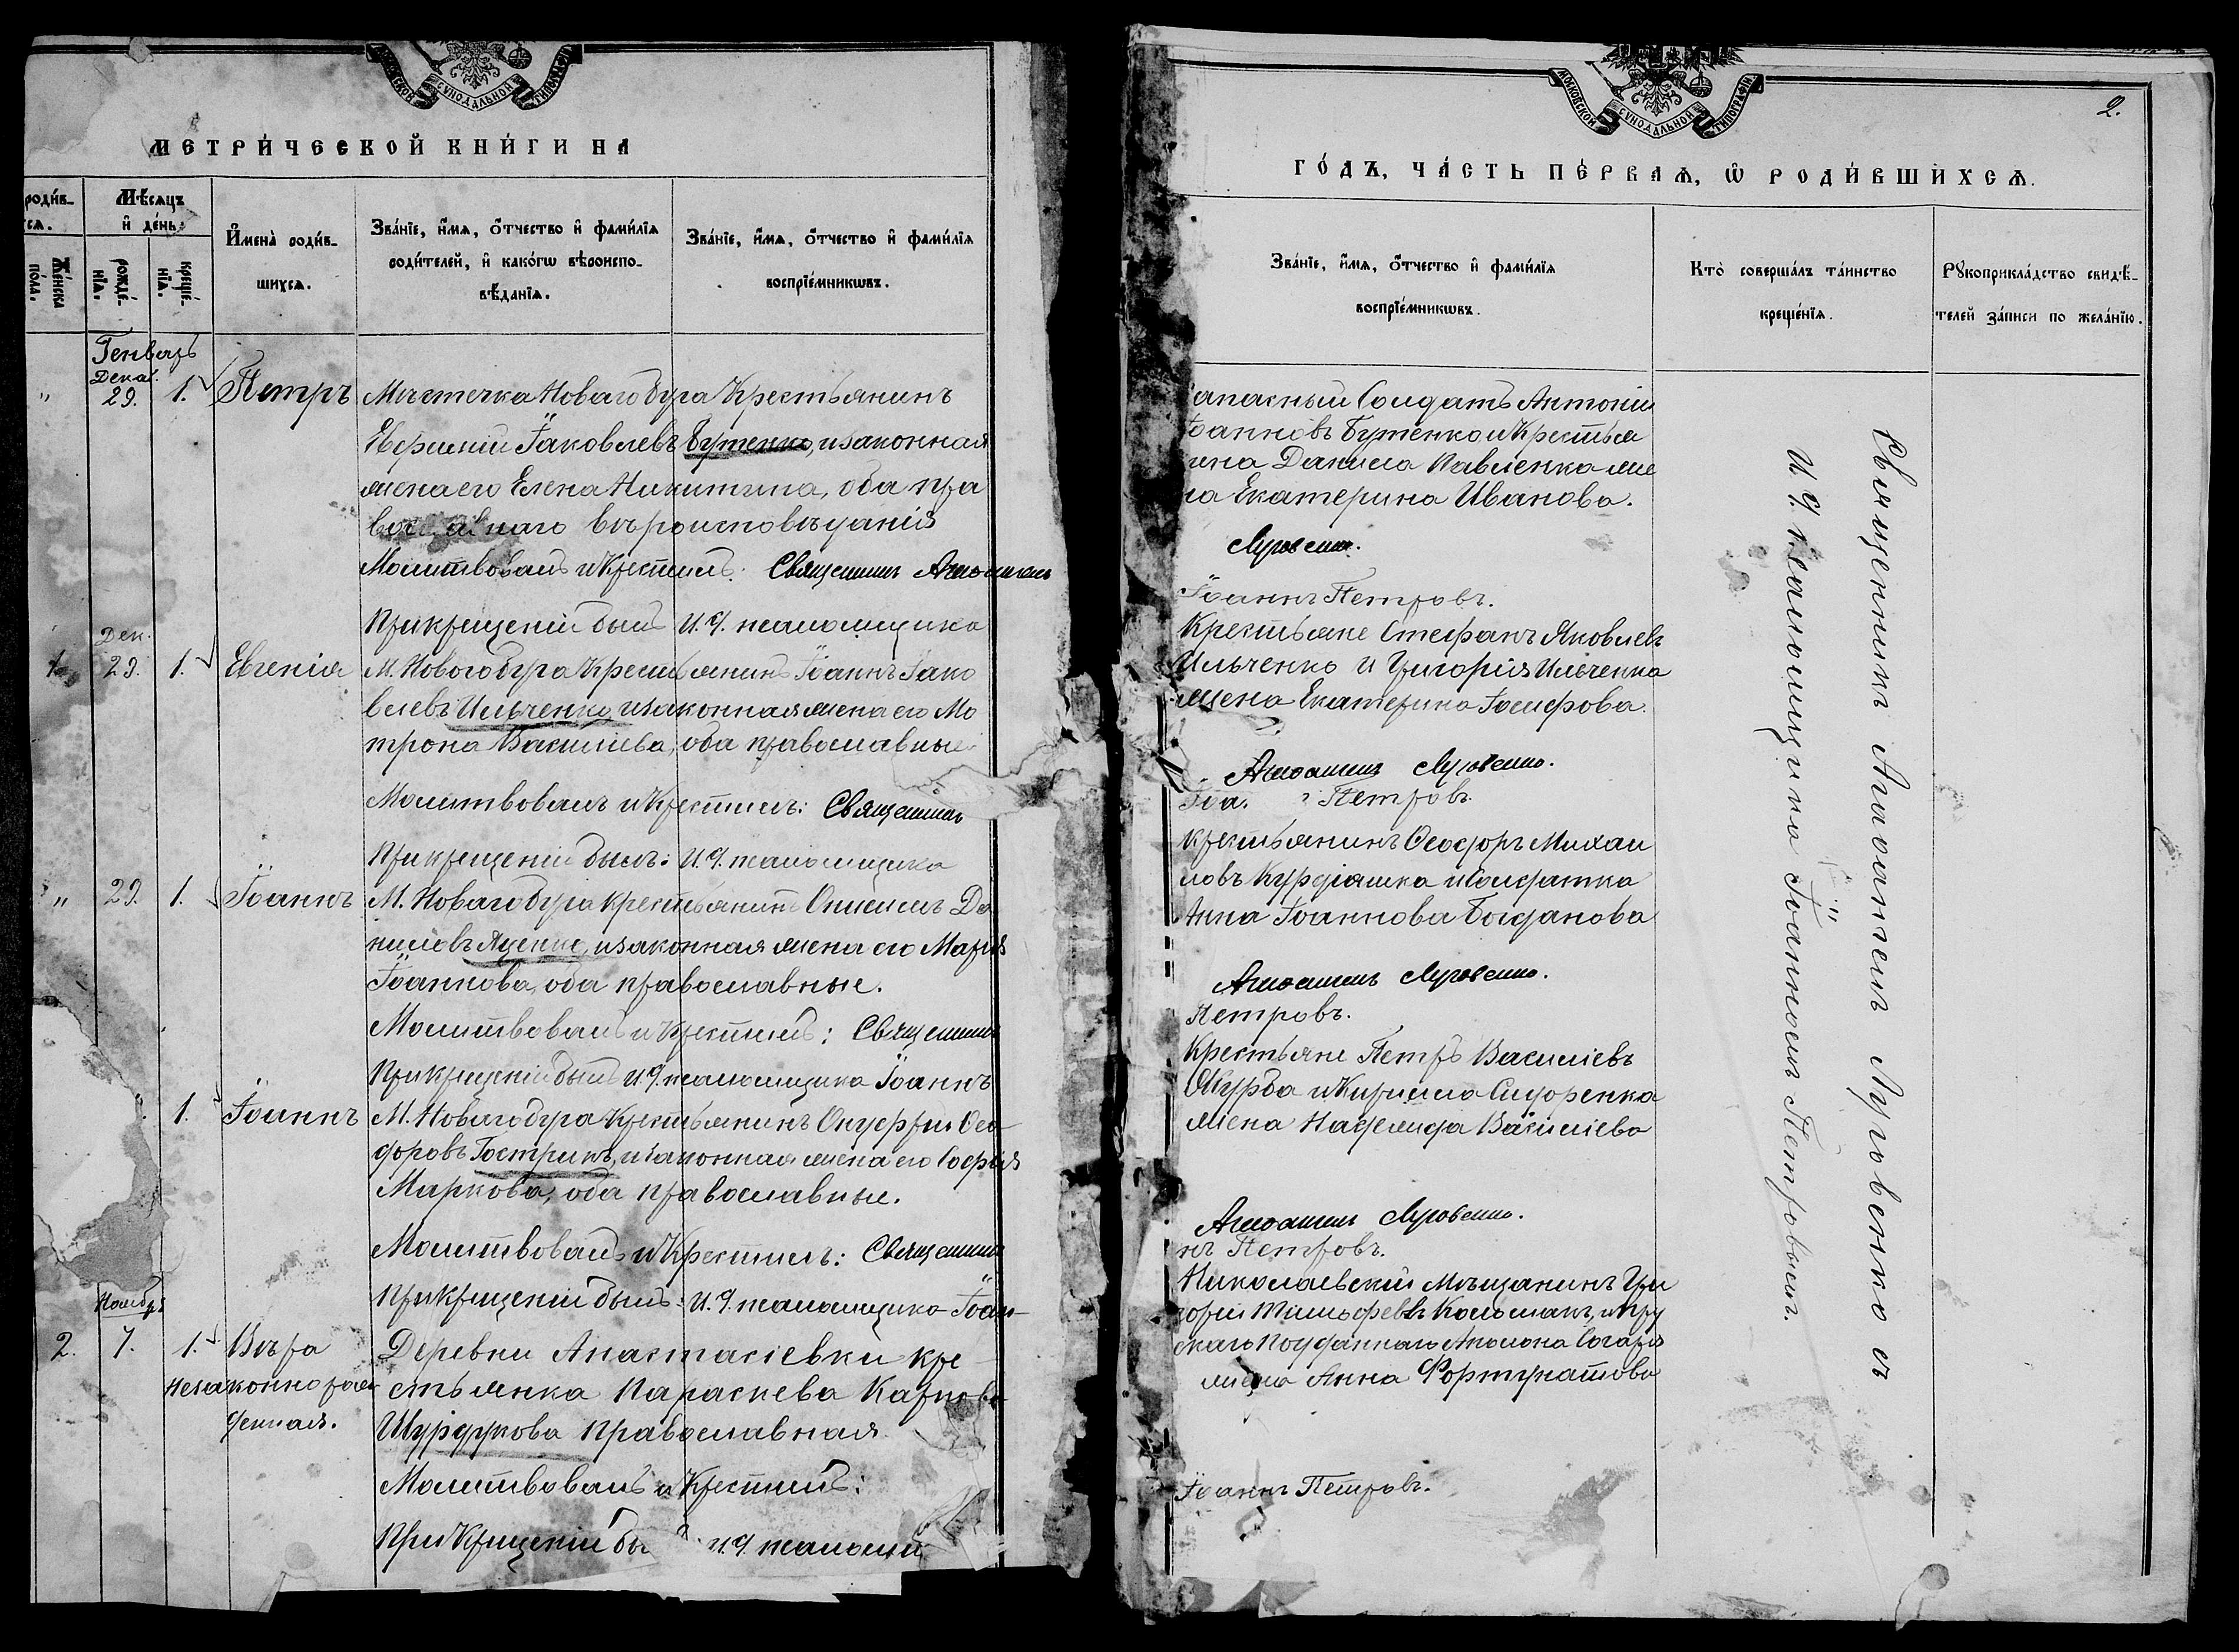 МОСКОВСКОЙ СУНОДАЛЬНОЙ ТИПОГРАФІИ
МЕТРИ́ЧЕСКОЙ КНИ́ГИ НА
роди́в-
ся.
Же́нска по́ла.
Мѣ́сяцъ
и҆ де́нь.
рожде́-
нїѧ.
креще́-
нїѧ.
И҆мена̀ роди́в-
шихсѧ.
Зва́нїе, и҆́мѧ, ѻ҆́тчество и҆ фами́лїѧ
роди́телей, и҆ како́гѡ вѣроиспо-
вѣ́данїѧ.
Зва́нїе, и҆́мѧ, ѻ҆́тчество и҆ фами́лїѧ
воспрїе́мникѡвъ.
Генварь
Декаб.
„ 29. 1. Петръ
Мѣстечка Новаго Буга Крестьянинъ
Іаковлевъ Бутенко, и законная
жена его Елена Никитина, оба пра
вославнаго вѣроисповѣданія
Молитвовалъ и Крестилъ: Священникъ
При крещеніи былъ И. д. псаломщика
Дек.
29. 1. Евгенія
М. Новаго Буга Крестьянинъ Іоаннъ Іако
влевъ Ильченко и законная жена его Мо
трона Василіева, оба православные
Молитвовалъ и Крестилъ: Священникъ
При крещеніи былъ: И. д. псаломщика
„ 29. 1. Іоаннъ
М. Новаго Буга крестьянинъ Да
ниловъ Яценко, и законная жена его Марія
Іоаннова, оба православные.
Молитвовалъ и Крестилъ: Священникъ
При крещеніи былъ И. д. псаломщика Іоаннъ
1. Іоаннъ
М. Новаго Буга Крестьянинъ Онуфрій Ѳео-
доровъ Гострикъ, и законная жена его Софія
Маркова, оба православные.
Молитвовалъ и Крестилъ: Священникъ
При Крещеніи былъ: И. д. псаломщика Іоан-
Ноябрь
2. 7. 1. Вѣра
незаконнорож-
денная.
Деревни Анастасіевки кре-
стьянка Параскева Карпова
Шурдукова православная
Молитвовалъ и Крестилъ:
При Крещеніи бы И. д. псаломщи
МОСКОВСКОЙ СУНОДАЛЬНОЙ ТИПОГРАФІИ
2.
ГО́ДЪ, ЧА́СТЬ ПЕ́РВАѦ, Ѽ РОДИ́ВШИХСѦ.
Зва́нїе, и҆́мѧ, ѻ҆́тчество и҆ фами́лїѧ
воспрїе́мникѡвъ.
Кто̀ соверша́лъ та́инство
креще́нїѧ.
Рꙋкоприкла́дство свидѣ́-
телей за́писи по жела́нїю.
апасный Солдатъ Антоній
Іоанновъ Бутенко и Крестья
нина Данила Павленка же
на Екатерина Иванова.
Луговенко.
Іоаннъ Петровъ.
Крестьяне Стефанъ Яковлевъ
Ильченко и Григорія Ильченка
жена Екатерина Іосифова.
Луговенко.
Іоа. Петровъ.
крестьянинъ Ѳеодоръ Михаи
ловъ и солдатка
Анна Іоаннова Богданова
Луговенко.
Петровъ.
Крестьяне Петръ Василіевъ
и Кирилла Сидоренка
жена Надежда Василіева
Луговенко.
нъ Петровъ.
Николаевскій Мѣщанинъ Гри
горій и Пру
скаго подданнаго
жена Анна Фортунатова
Іоаннъ Петровъ.
Священникъ Луговенко съ
И. д. псаломщика Іоанномъ Петровымъ.